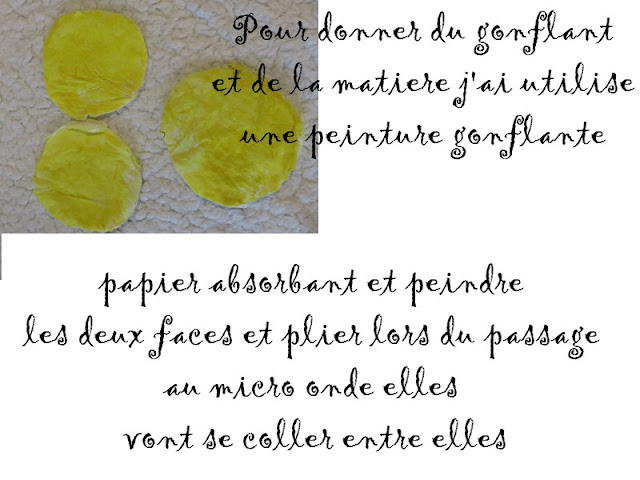 Pour donner du gonflant
et de la matiere j'ai utilise
une peinture gonflante
papier absorbant et peindre
les deux faces et plier lors du passage
au micro onde elles
vont se coller entre elles